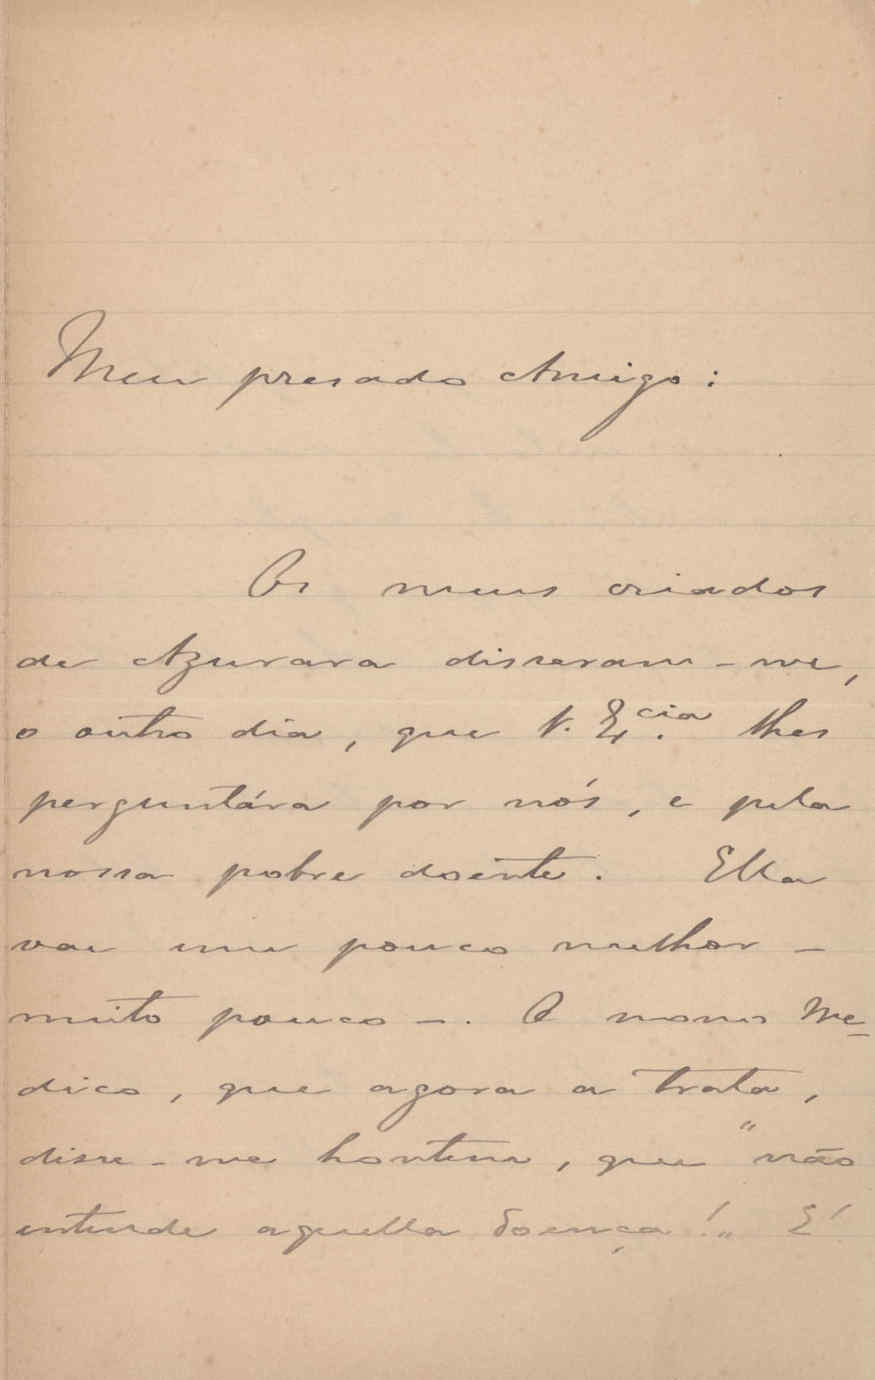 Meu presado Amigo:
Os meus criados
de Azurara disseram-me,
o outro dia, que V. Ex.cia lhes
perguntára por nós, e pela
nossa pobre doente. Ella
vae um pouco melhor —
muito pouco —. O novo Me-
dico, que agora a trata,
disse-me hontem, que "não
entende aquella doença!" É